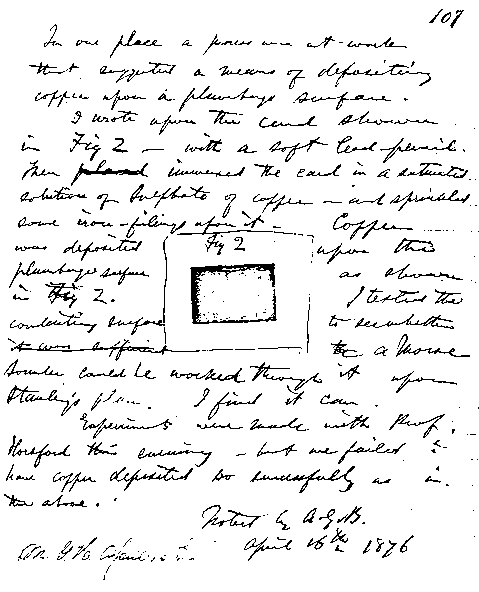 107
In one place a process was at work
that suggested a means of depositing
copper upon a plumbago surface.
I wrote upon the card shown
in Fig 2 - with a soft lead-pencil.
Then placed immersed the card in a saturated
solution of Sulphate of copper - and sprinkled
some iron-filings upon it - Copper
was deposited Fig 2 upon the
plumbago surface as shown
in Fig 2. I tested the
conducting surface to see whether
it was sufficient a Morse
Sounder could be worked through it upon
plan. I find it can.
Experiments were made with Prof.
Horsford this evening - but we failed to
have copper deposited so successfully as in
the above.
Noted by A.G.B.
April 16th 1876